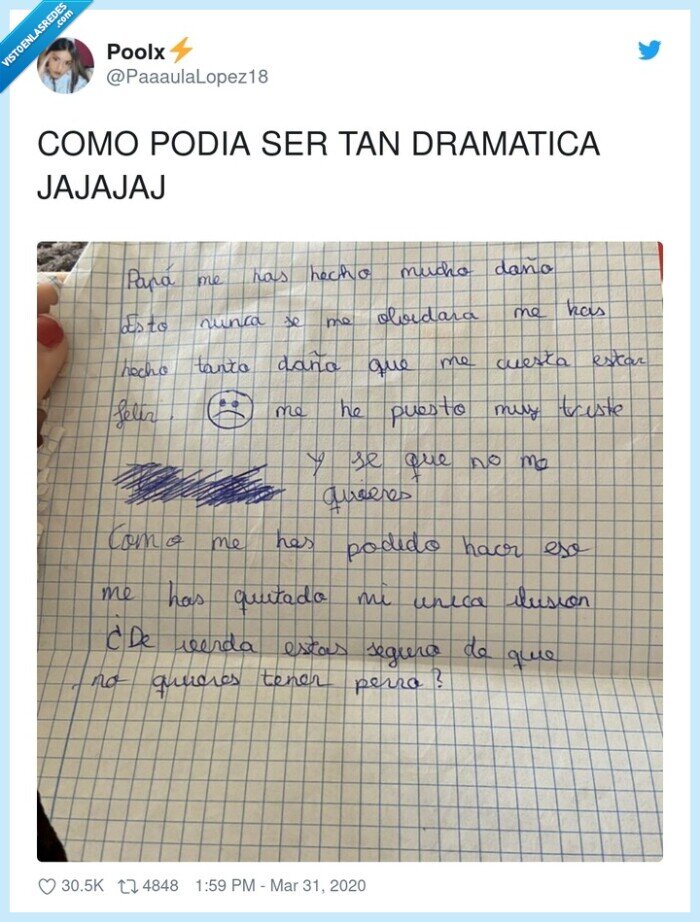 VISTOENLASREDES
.com
Poolx⚡
@PaaaulaLopez18
COMO PODIA SER TAN DRAMATICA
JAJAJAJ
Papá me has hecho mucho daño
Esto nunca se me olvidara me has
hecho tanto daña que me cuesta estar
feliz. ☹ me he puesto muy triste
Y se que no me
quieres
Como me has podido hacer eso
me has quitado mi unica ilusion
¿De verda estas seguro de que
no quieres tener perro?
30.5K 4848 1:59 PM - Mar 31, 2020